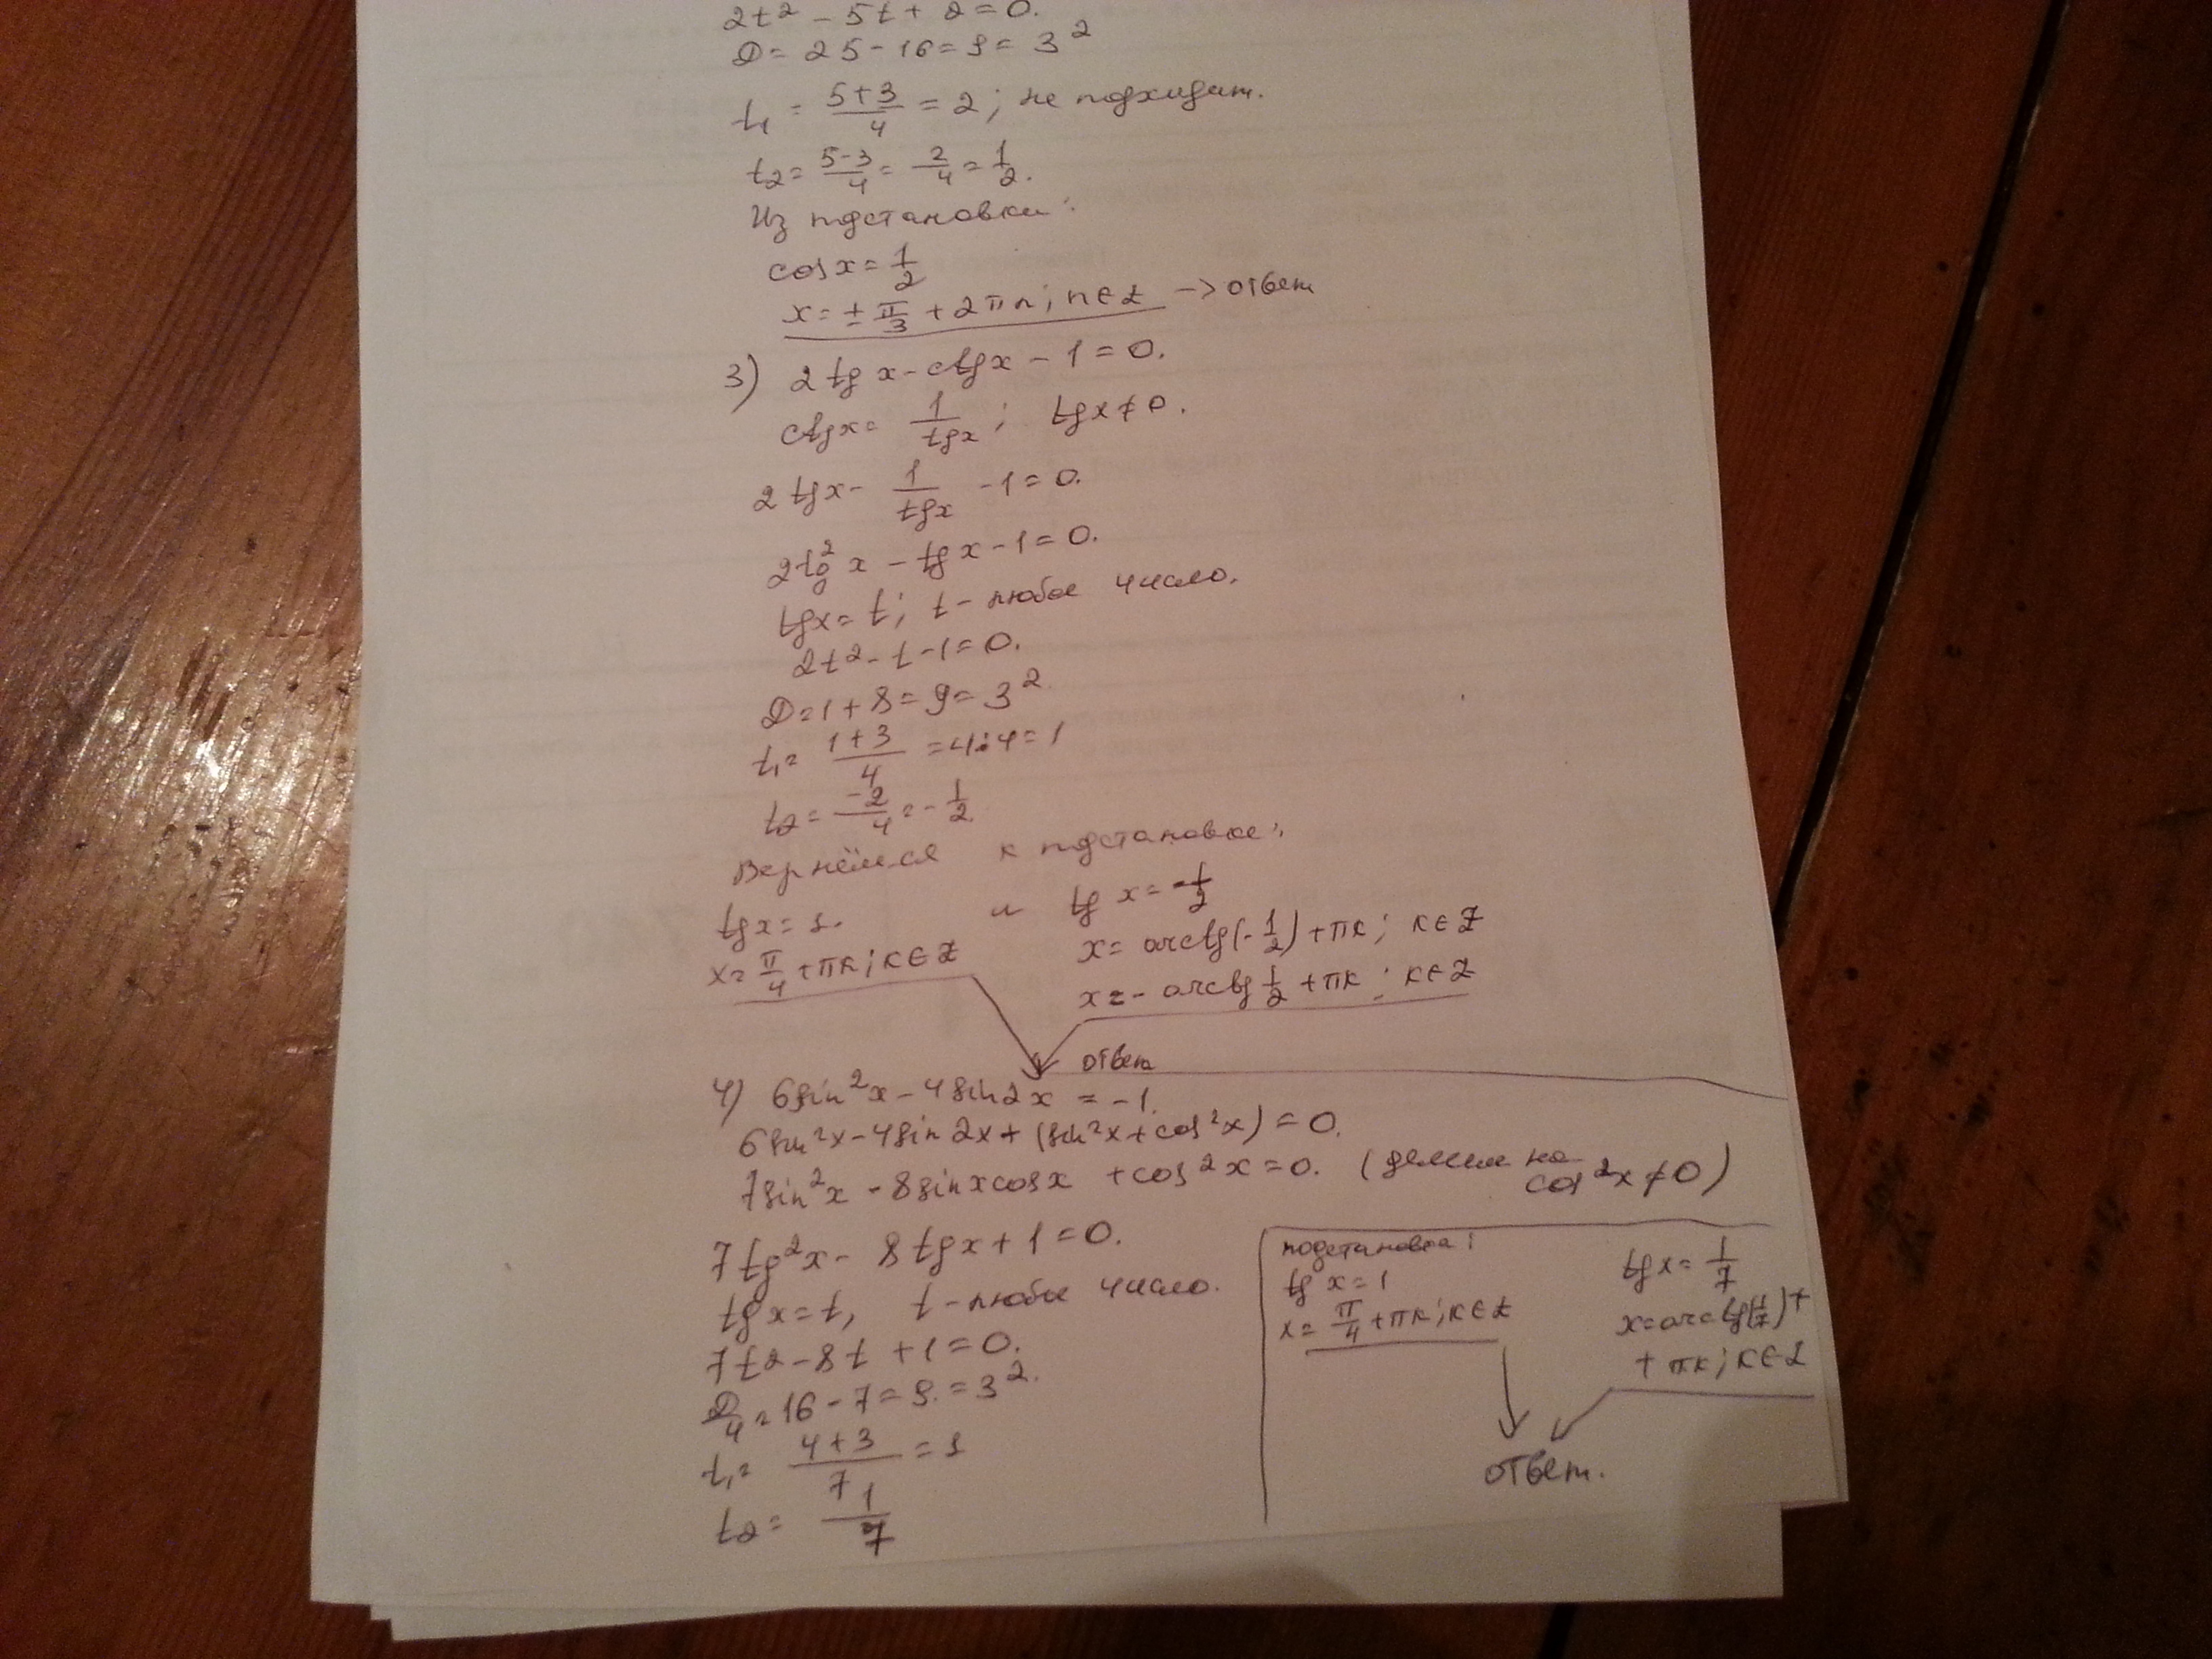 2t² - 5t + 2 = 0.
D = 25 - 16 = 9 = 3²
t₁ = (5+3)/4 = 2; не подходит.
t₂ = (5-3)/4 = 2/4 = 1/2.
Из подстановки:
cos x = 1/2
x = ± π/3 + 2πn; n ∈ Z → ответ
3) 2 tg x - ctg x - 1 = 0.
ctg x = 1/tg x; tg x ≠ 0.
2 tg x - 1/tg x - 1 = 0.
2 tg² x - tg x - 1 = 0.
tg x = t; t - любое число.
2t² - t - 1 = 0.
D = 1 + 8 = 9 = 3²
t₁ = (1+3)/4 = 4:4 = 1
t₂ = -2/4 = -1/2
Вернёмся к подстановке:
tg x = 1. и tg x = -1/2
x = π/4 + πk; k ∈ Z x = arctg(-1/2) + πk; k ∈ Z
x = - arctg 1/2 + πk; k ∈ Z
ответ
4) 6 sin² x - 4 sin 2x = -1.
6 sin² x - 4 sin 2x + (sin² x + cos² x) = 0.
7 sin² x - 8 sin x cos x + cos² x = 0. (делим на
cos² x ≠ 0)
7 tg² x - 8 tg x + 1 = 0.
tg x = t, t - любое число.
7t² - 8t + 1 = 0.
D/4 = 16 - 7 = 9 = 3².
t₁ = (4+3)/7 = 1
t₂ = 1/7
подстановка:
tg x = 1
x = π/4 + πk; k ∈ Z
tg x = 1/7
x = arctg(1/7) +
+ πk; k ∈ Z
ответ.